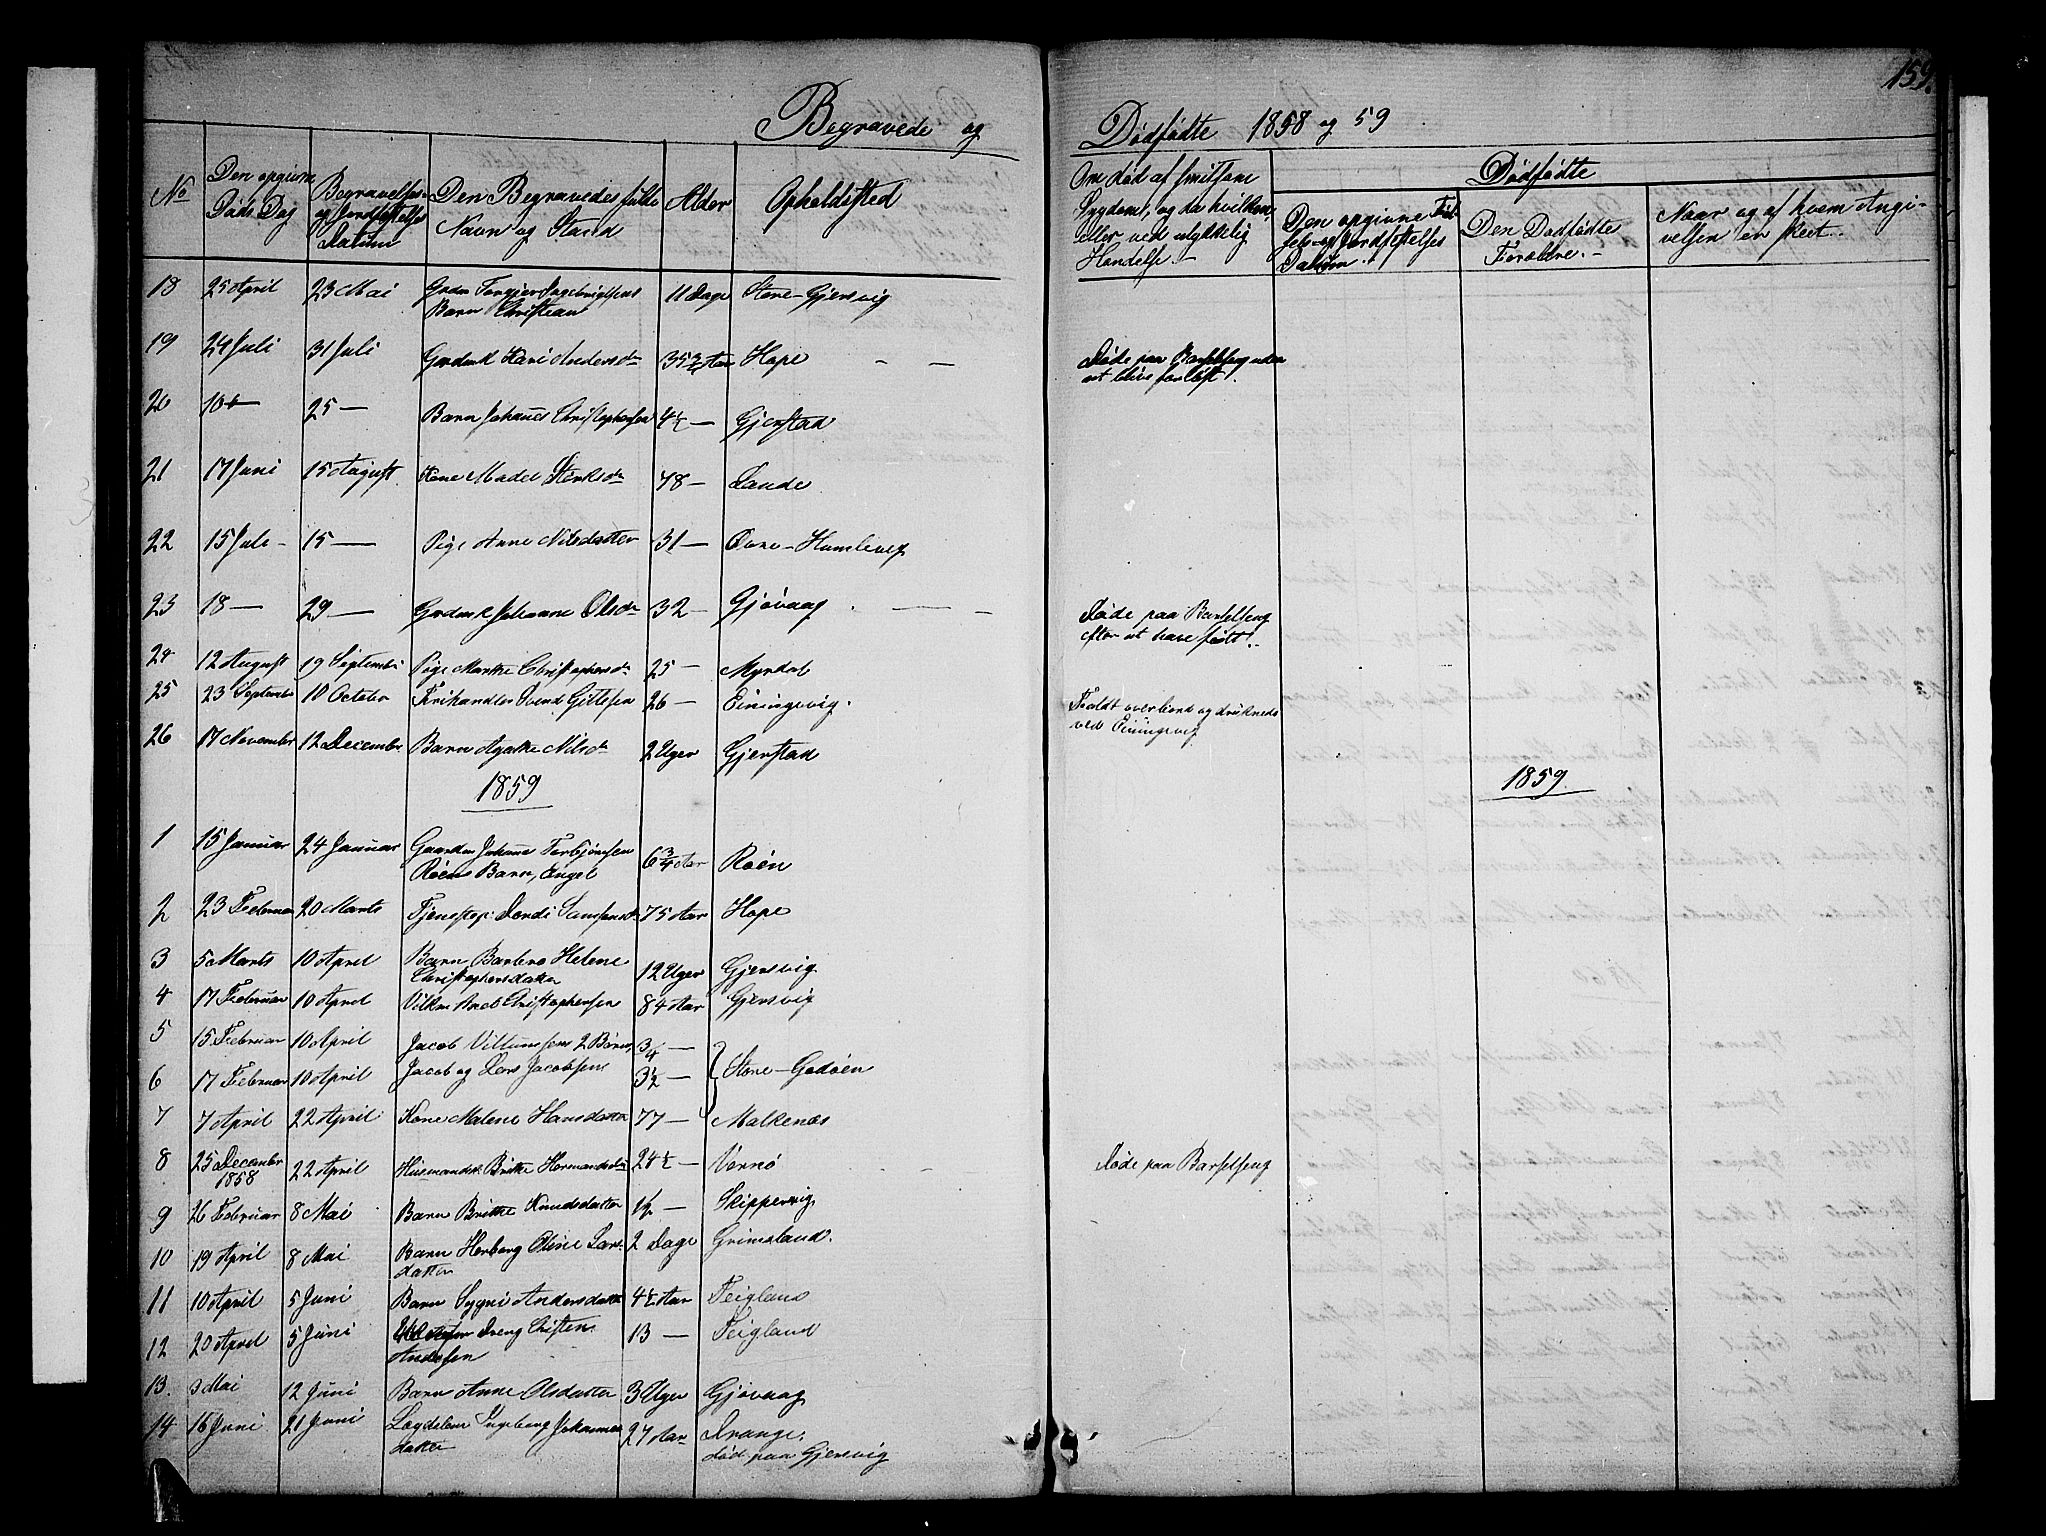 159.
Begravede og Dødfødte 1858 og 59
No
Den opgivne Døds Dag
Begravelses- og Jordfæstelses Datum
Den Begravedes fulde Navn og Stand
Alder
Opholdssted
Om død af smitsom Sygdom, og da hvilken, eller ved ulykkelig Hændelse.-
Dødfødte
Den opgivne Fødsels- og Jordfæstelses Datum.
Den Dødfødtes Forældre.-
Naar og af hvem Angivelsen er skeet.-
18 25 April 23 Mai Grdm Torgier Ingebrigtsens 11 Dage Store-Gjersvig
Barn Christian
19 24 Juli 31 Juli Grdmk Kari Andersdr 35 3/4 Aar Hope — —
Døde paa Barselseng uden
at blive forløst.
20 10 — 25 — Barn Johannes Christophersen 4½ — Gjerstad
21 17 Juni 15 August Kone Madel Størksdr 78 — Lande
22 15 Juli - 15 — Pige Anne Nilsdatter 31 — Øvre-Humlevig
23 18 — 29 — Grdmk Johanne Olsdr 32 — Gjøvaag — —
Døde paa Barselseng
efter at have født.
24 12 August 19 September Pige Marthe Christophersdr 25 — Myrdal
25 23 September 10 October Frihandler Svend Gittlesen 26 — Einingevig.
Faldt overbord og druknede
ved Einingevig
26 17 November 12 December Barn Agathe Nilsdr 2 Uger Gjerstad
1859
1859.
1 15 Januar 24 Januar Gaardm Johannes Torbjørnsen 6 3/4 Aar Røen
Røens Barn, Engel
2 23 Februar 20 Marts Tjenestepi: Dordi Samsonsdr 75 Aar Hope
3 5 Marts 10 April Barn Barbro Helene 12 Uger Gjersvig
Christophersdatter
4 17 Februar 10 April Christophersen 84 Aar Gjersvig
5 15 Februar 10 April Jacob Villumsens 2 Børn, 3/4 —
6 17 Februar 10 April Jacob og Lars Jacobsens 3½ — Store-Godøen
7 7 April 22 April Kone Malene Hansdatter 77 — Malkenæs
8 25 December 1858 22 April Husmandsk. Britte Hermandsdr 24½ — Vernø
Døde paa Barselseng
9 26 Februar 8 Mai Barn Britte Knudsdatter 1½ — Skippervig
10 19 April 8 Mai Barn Herborg Oline Lars- 2 Dage Grimsland.
datter
11 10 April 5 Juni Barn Sygni Andersdatter 4½ Aar Teigland
12 20 April 5 Juni Dreng Christen 13 — Teigland
Andersen
13. 3 Mai 12 Juni Barn Anne Olsdatter 3 Uger Gjøvaag
14 16 Juni 21 Juni Lægdslem Ingeborg Johannes- 27 Aar Drange.
datter død paa Gjersvig